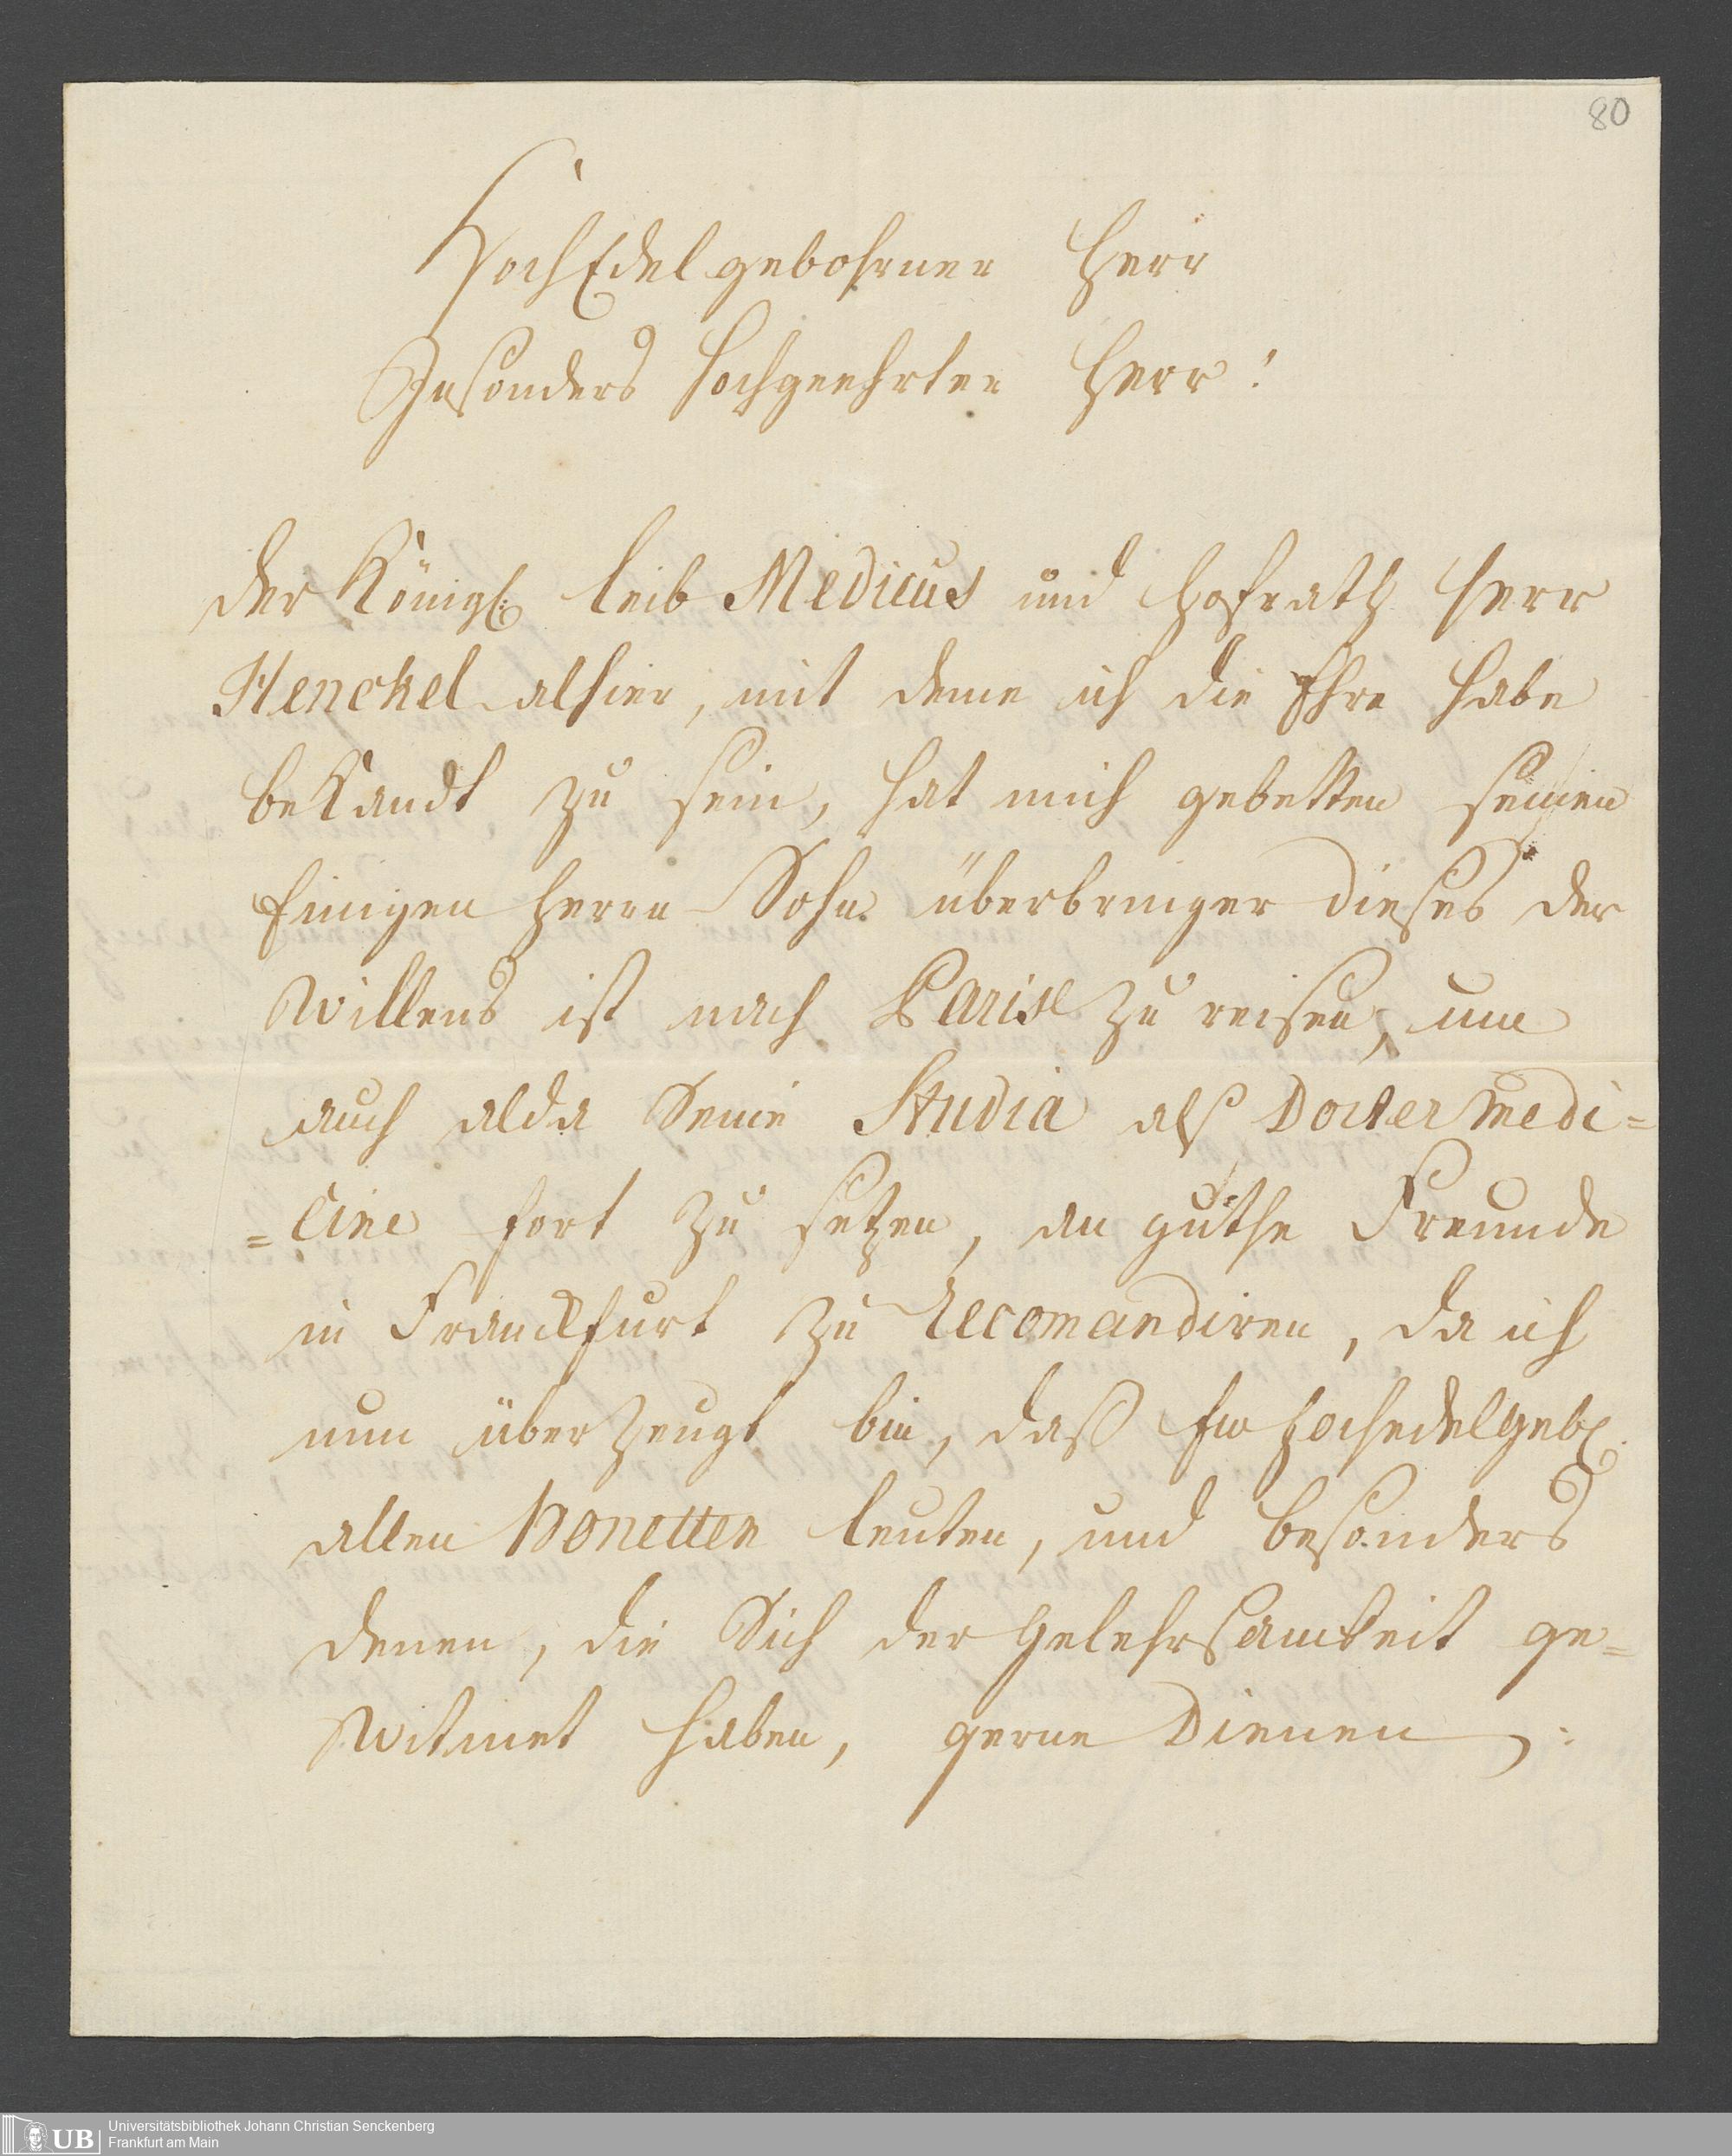 80
HochEdelgebohrner Herr
Insonders hochgeehrter Herr!
Der Königl: leib Medicus und Hofrath Herr
Henckel alhier, mit deme ich die Ehre habe
beKandt zu sein, hat mich gebetten seinen
Einigen Herrn Sohn überbringer dieses der
Willens ist nach Paris zu reisen, um
auch alda Seine Studia alß Docter Medi=
=cine fort zu setzen, an guthe Freunde
in Franckfurt zu Recomandiren, da ich
nun überzeugt bin, daß Ew Hochedelgebl.
allen Honetten leuten, und besonders
denen, die Sich der Gelehrsamkeit ge=
Witmet haben, gerne Dienen:
UB Universitätsbibliothek Johann Christian Senckenberg
Frankfurt am Main